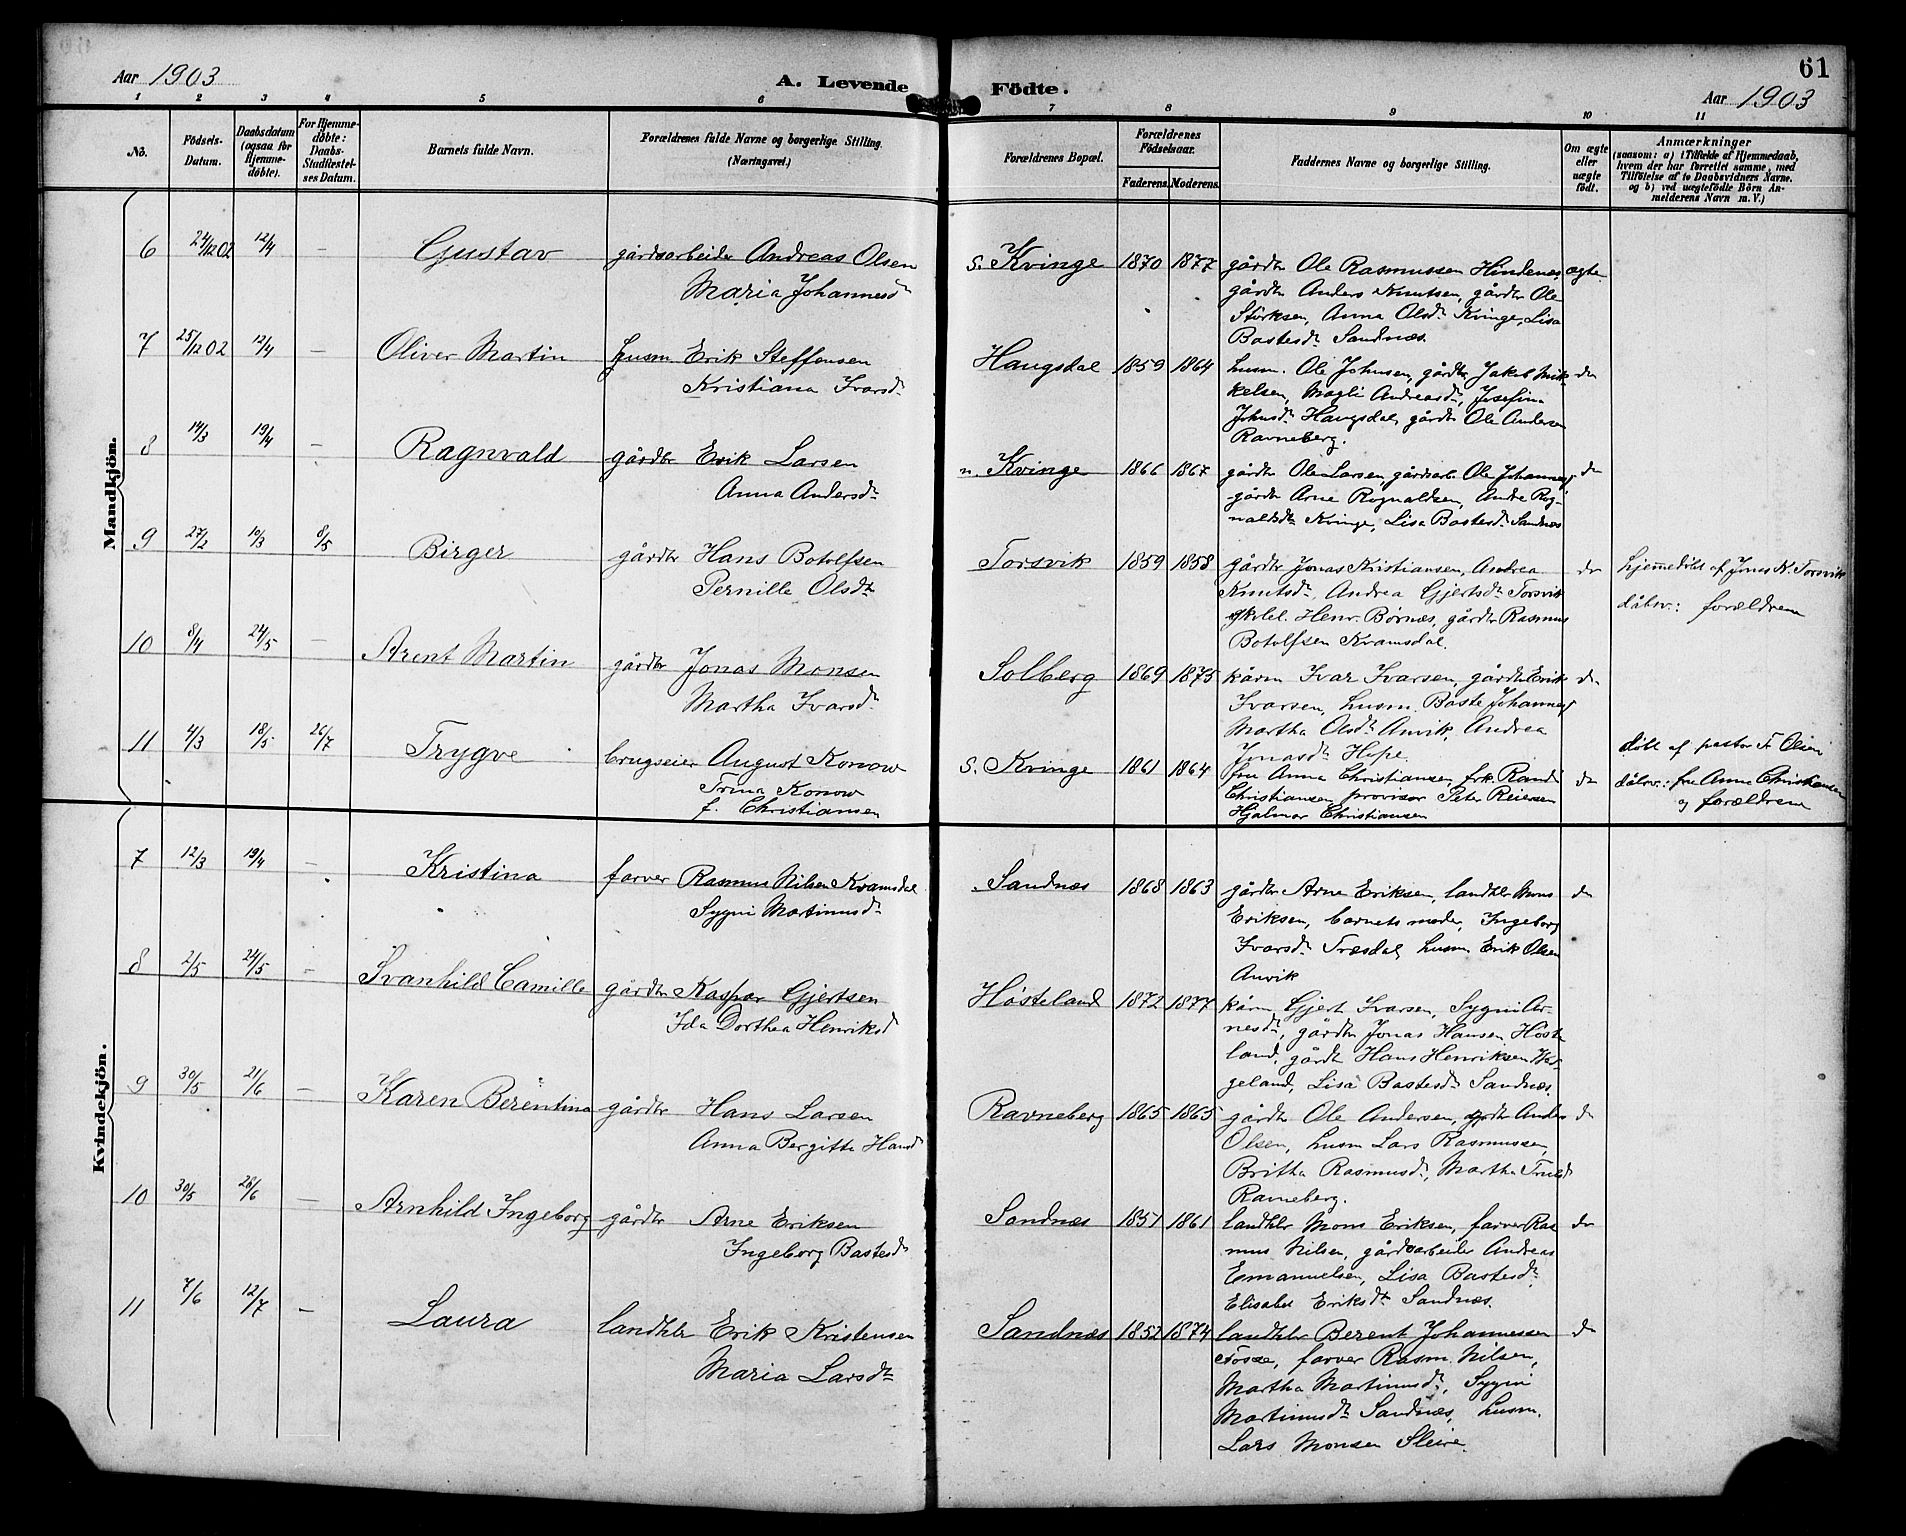 61
Aar 1903
A. Levende Födte.
Aar 1903
1 2 3 4 5 6 7 8 9 10 11
No.
Födsels-
Datum.
Daabsdatum
(ogsaa for
Hjemme-
döbte).
For Hjemme-
døbte:
Daabs-
Stadfæstel-
ses Datum.
Barnets fulde Navn.
Forældrenes fulde Navne og borgerlige Stilling
(Næringsvei.)
Forældrenes Bopæl.
Forældrenes
Fødselsaar.
Faderens. Moderens.
Faddernes Navne og borgerlige Stilling.
Om ægte
eller
uægte
født.
Anmærkninger
(saasom: a) i Tilfælde af Hjemmedaab,
hvem der har forrettet samme, med
Tilføielse af to Daabsvidners Navne.
og b) ved uægtefødte Börn An-
melderens Navn m. V.)
Mandkjön.
6 24/12 02 12/4 — Gustav gårdsarbeider Andreas Olsen
Maria Johannesdt
S. Kvinge 1870 1877 gårdbr Ole Rasmussen Hindenes ægte
gårdbr Anders Knutsen, gårdbr Ole
Størksen, Anna Olsdt Kvinge, Lisa
Bastesdt Sandnæs.
7 25/12 02 12/4 — Oliver Martin husm Erik Steffensen
Kristiana Ivarsdt
Haugsdal 1859 1864 husm. Ole Johnsen, gårdbr Jakob Mik- do
kelsen, Magli Andreasdt, Josefine
Johnsdt Haugsdal, gårdbr Ole Andersen
Ravneberg.
8 14/3 19/4 — Ragnvald gårdbr Erik Larsen
Anna Andersdt
n. Kvinge 1866 1867 gårdbr Ole Larsen, gårdsarb Ole Johannes do
gårdbr Arne Rognaldsen, Andre Rog-
naldsdt Kvinge, Lisa Bastesdt Sandnæs
9 27/2 10/3 8/5 Birger gårdbr Hans Botolfsen
Pernille Olsdt
Torsvik 1859 1858 gårdbr Jonas Kristiansen, Andrea do
Knutsdt, Andrea Gjertsdt Torsvik
Henr. Børnes, gårdbr Rasmus
Botolfsen Kvamsdal.
hjemmedøbt af Jonas K. Torsvik
dåbsv.: forældrene
10 8/4 24/5 — Arent Martin gårdbr Jonas Monsen
Martha Ivarsdt
Solberg 1869 1875 kårm Ivar Ivarsen, gårdbr Erik do
Ivarsen, husm. Baste Johannes
Martha Olsdt Anvik, Andrea
Jonasdt Hope.
11 4/3 18/5 26/7 Trygve brugseier August Konow
Trina Konow
f. Christiansen
S. Kvinge 1861 1864 fru Anna Christiansen frk. Randi do
Christiansen provisor Peter Reiersen
Hjalmar Christiansen
døbt af pastor F. Olsen
dåbsv.: fru Anna Christiansen
og forældrene
Kvindekjön.
7 12/3 19/4 — Kristina farver Rasmus Nilsen Kvamsdal
Sygni Martinusdt
Sandnæs 1868 1863 gårdbr Arne Eriksen, landhlr Mons do
Eriksen, barnets moder, Ingeborg
Ivarsdt Træsdal, husm Erik Olsen
Anvik
8 2/5 24/5 — Svanhild Camille gårdbr Kaspar Gjertsen
Ida Dorthea Henriksd
Høsteland 1872 1877 kårm Gjert Ivarsen, Sygni Ar-
nesdt, gårdbr Jonas Hansen Høste
land, gårdbr Hans Henriksen
geland, Lisa Bastesdt Sandnæs.
9 30/5 21/6 — Karen Berentina gårdbr Hans Larsen
Anna Bergitte Hansd
Ravneberg 1865 1865 gårdbr Ole Andersen, gårdbr Anders do
Olsen, husm Lars Rasmussen,
Britha Rasmusdt, Martha Trulsd
Ravneberg.
10 30/5 28/6 — Arnhild Ingeborg gårdbr Arne Eriksen
Ingeborg Bastesdt
Sandnæs 1851 1861 landhlr Mons Eriksen, farver Ras do
mus Nilsen, gårdsarbeider Andreas
Emanuelsen, Lisa Bastesdt
Elisabet Eriksdt Sandnæs.
11 7/6 12/7 — Laura landhlr Erik Kristensen
Maria Larsdt
Sandnæs 1852 1874 landhlr Berent Johannessen do
Fosse, farver Rasm. Nilsen,
Martha Martinusdt, Sygni
Martinusdt Sandnæs, husm.
Lars Monsen Sleire.